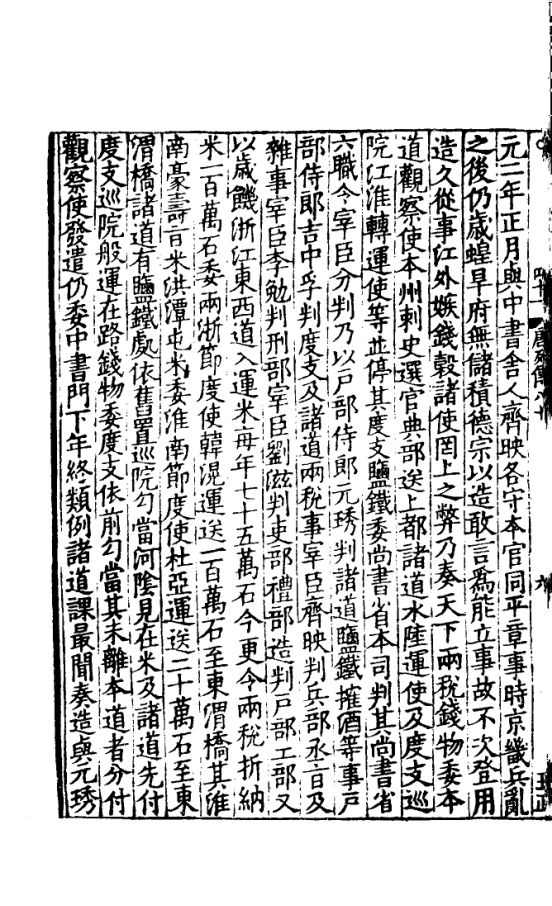 元二年正月與中書舍人齊映各守本官同平章事時京畿兵亂
之後仍歲蝗旱府無儲積德宗以造敢言為能立事故不次登用
造久從事江外嫉錢穀諸使罔上之弊乃奏天下兩稅錢物委本
道觀察使本州刺史選官典部送上都諸道水陸運使及度支巡
院江淮轉運使等並停其度支鹽鐵委尚書省本司判其尚書省
六職令宰臣分判乃以戶部侍郎元琇判諸道鹽鐵搉酒等事戶
部侍郎吉中孚判度支及諸道兩稅事宰臣齊映判兵部承旨及
雜事宰臣李勉判刑部宰臣劉滋判吏部禮部造判戶部工部又
以歲饑浙江東西道入運米每年七十五萬石今更令兩稅折納
米一百萬石委兩浙節度使韓滉運送一百萬石至東渭橋其淮
南豪壽旨米洪潭屯米委淮南節度使杜亞運送二十萬石至東
渭橋諸道有鹽鐵處依舊置巡院勾當河陰見在米及諸道先付
度支巡院般運在路錢物委度支依前勾當其未離本道者分付
觀察使發遣仍委中書門下年終類例諸道課最聞奏造與元琇